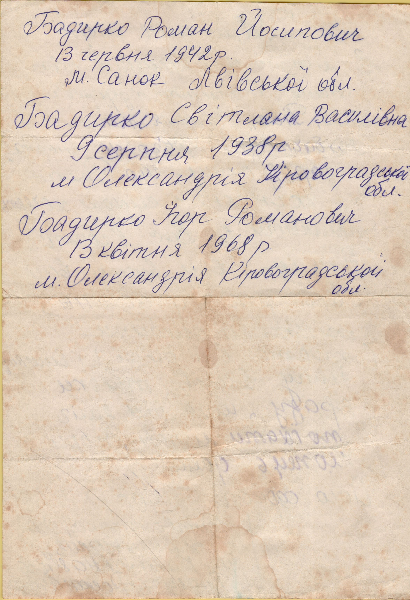 Бадирко Роман Йосипович
13 червня 1942р.
м. Санок Львівської обл.
Бадирко Світлана Василівна
9 серпня 1938р
м Олександрія Кіровоградської
обл.
Бадирко Ігор Романович
13 квітня 1968р
м. Олександрія Кіровоградської
обл.